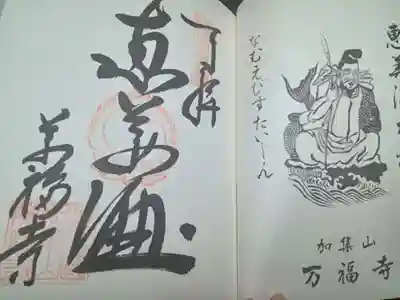 恵美酒
なむえびすたいしん
加集山
万福寺
奉拝
恵美酒
萬福寺